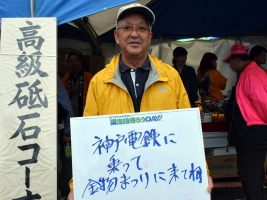 高級砥石コー
神戸電鉄に
乗って
金物まつりに来てね